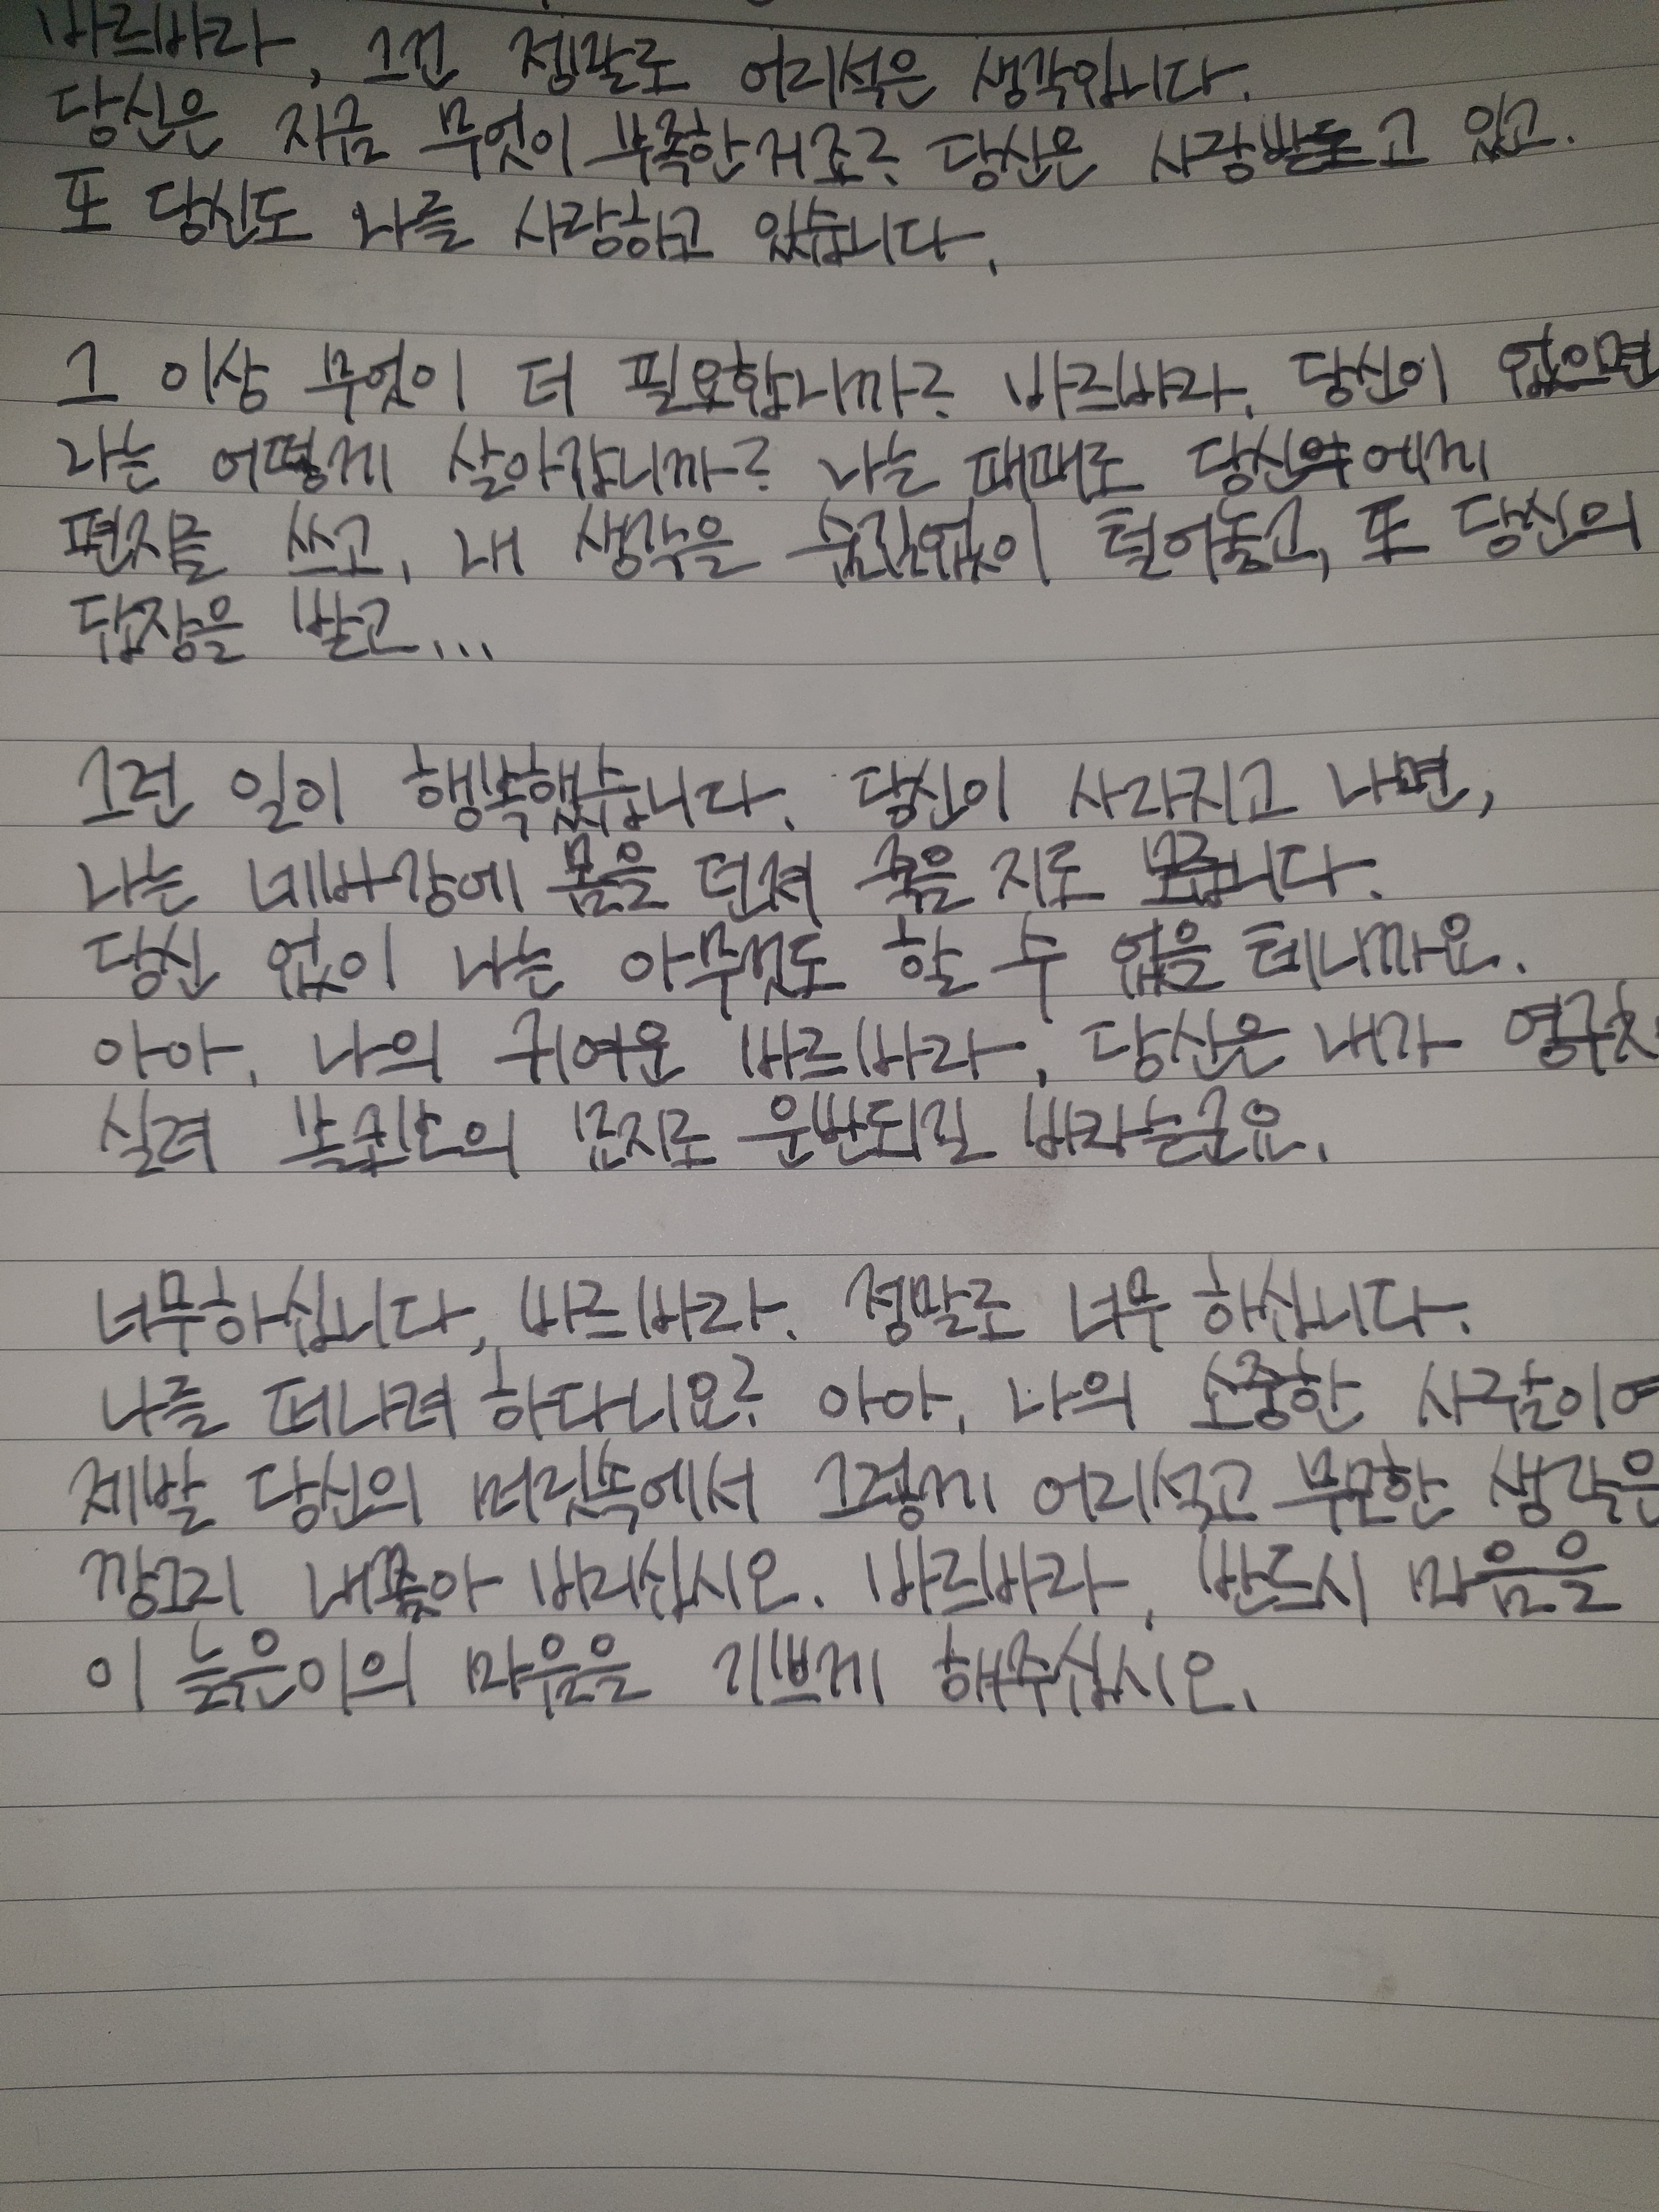 바르바라, 그건 정말로 어리석은 생각입니다.
당신은 지금 무엇이 부족한거죠? 당신은 사랑받고 있고.
또 당신도 나를 사랑하고 있습니다.
그 이상 무엇이 더 필요합니까? 바르바라, 당신이 없으면
나는 어떻게 살아갑니까? 나는 때때로 당신에게
편지를 쓰고, 내 생각을 숨김없이 털어놓고, 또 당신의
답장을 받고...
그런 일이 행복했습니다. 당신이 사라지고 나면,
나는 네바강에 몸을 던져 죽을 지도 모릅니다.
당신 없이 나는 아무것도 할 수 없을 테니까요.
아아, 나의 귀여운 바르바라, 당신은 내가 영구차
실려 볼코보의 묘지로 운반되길 바라는군요.
너무하십니다, 바르바라. 정말로 너무 하십니다.
나를 떠나려 하다니요? 아아, 나의 소중한 사람이여
제발 당신의 머릿속에서 그렇게 어리석고 무모한 생각은
깡그리 내쫓아 버리십시오. 바르바라, 반드시 마음을
이 늙은이의 마음을 기쁘게 해주십시오.